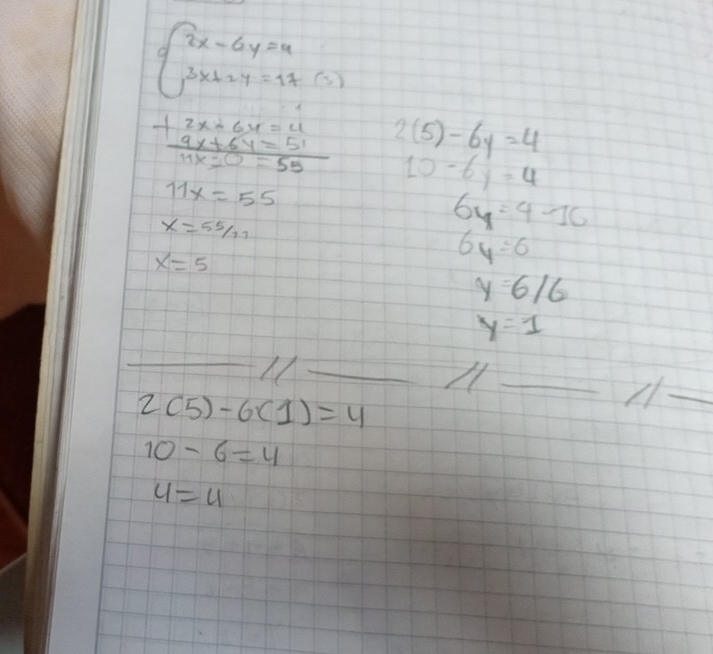 2x - 6y = 4
3x + 2y = 17 (3)
+ 2x - 6y = 4
9x + 6y = 51
11x = 0 = 55
11x = 55
x = 55/11
x = 5
2(5) - 6y = 4
10 - 6y = 4
6y = 4 - 10
6y = 6
y = 6/6
y = 1
2(5) - 6(1) = 4
10 - 6 = 4
4 = 4